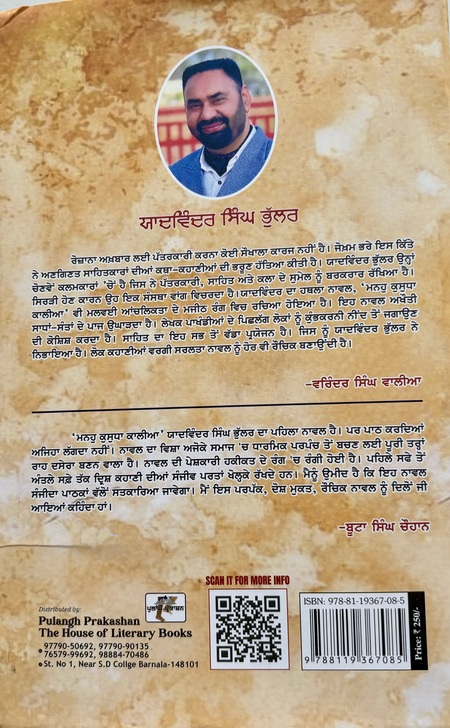 ਯਾਦਵਿੰਦਰ ਸਿੰਘ ਭੁੱਲਰ
ਰੋਜ਼ਾਨਾ ਅਖ਼ਬਾਰ ਲਈ ਪੱਤਰਕਾਰੀ ਕਰਨਾ ਕੋਈ ਸੌਖਾਲਾ ਕਾਰਜ ਨਹੀਂ ਹੈ। ਜੋਖ਼ਮ ਭਰੇ ਇਸ ਕਿੱਤੇ
ਨੇ ਅਣਗਿਣਤ ਸਾਹਿਤਕਾਰਾਂ ਦੀਆਂ ਕਥਾ-ਕਹਾਣੀਆਂ ਦੀ ਭਰੂਣ ਹੱਤਿਆ ਕੀਤੀ ਹੈ। ਯਾਦਵਿੰਦਰ ਭੁੱਲਰ ਉਨ੍ਹਾਂ
ਚੋਣਵੇਂ ਕਲਮਕਾਰਾਂ 'ਚੋਂ ਹੈ ਜਿਸ ਨੇ ਪੱਤਰਕਾਰੀ, ਸਾਹਿਤ ਅਤੇ ਕਲਾ ਦੇ ਸੁਮੇਲ ਨੂੰ ਬਰਕਰਾਰ ਰੱਖਿਆ ਹੈ।
ਸਿਰੜੀ ਹੋਣ ਕਾਰਨ ਉਹ ਇਕ ਸੰਸਥਾ ਵਾਂਗ ਵਿਚਰਦਾ ਹੈ।ਯਾਦਵਿੰਦਰ ਦਾ ਹਥਲਾ ਨਾਵਲ, 'ਮਨਹੁ ਕੁਸੁਧਾ
ਕਾਲੀਆ' ਵੀ ਮਲਵਈ ਆਂਚਲਿਕਤਾ ਦੇ ਮਜੀਠ ਰੰਗ ਵਿਚ ਰਚਿਆ ਹੋਇਆ ਹੈ। ਇਹ ਨਾਵਲ ਅਖੌਤੀ
ਸਾਧਾਂ-ਸੰਤਾਂ ਦੇ ਪਾਜ ਉਘਾੜਦਾ ਹੈ। ਲੇਖਕ ਪਾਖੰਡੀਆਂ ਦੇ ਪਿਛਲੱਗ ਲੋਕਾਂ ਨੂੰ ਕੁੰਭਕਰਨੀ ਨੀਂਦ ਤੋਂ ਜਗਾਉਣ
ਦੀ ਕੋਸ਼ਿਸ਼ ਕਰਦਾ ਹੈ। ਸਾਹਿਤ ਦਾ ਇਹ ਸਭ ਤੋਂ ਵੱਡਾ ਪ੍ਰਯੋਜਨ ਹੈ। ਜਿਸ ਨੂੰ ਯਾਦਵਿੰਦਰ ਭੁੱਲਰ ਨੇ
ਨਿਭਾਇਆ ਹੈ। ਲੋਕ ਕਹਾਣੀਆਂ ਵਰਗੀ ਸਰਲਤਾ ਨਾਵਲ ਨੂੰ ਹੋਰ ਵੀ ਰੌਚਿਕ ਬਣਾਉਂਦੀ ਹੈ।
-ਵਰਿੰਦਰ ਸਿੰਘ ਵਾਲੀਆ
'ਮਨਹੁ ਕੁਸੁਧਾ ਕਾਲੀਆ' ਯਾਦਵਿੰਦਰ ਸਿੰਘ ਭੁੱਲਰ ਦਾ ਪਹਿਲਾ ਨਾਵਲ ਹੈ। ਪਰ ਪਾਠ ਕਰਦਿਆਂ
ਅਜਿਹਾ ਲੱਗਦਾ ਨਹੀਂ। ਨਾਵਲ ਦਾ ਵਿਸ਼ਾ ਅਜੋਕੇ ਸਮਾਜ 'ਚ ਧਾਰਮਿਕ ਪਰਪੰਚ ਤੋਂ ਬਚਣ ਲਈ ਪੂਰੀ ਤਰ੍ਹਾਂ
ਰਾਹ ਦਸੇਰਾ ਬਣਨ ਵਾਲਾ ਹੈ। ਨਾਵਲ ਦੀ ਪੇਸ਼ਕਾਰੀ ਹਕੀਕਤ ਦੇ ਰੰਗ 'ਚ ਰੰਗੀ ਹੋਈ ਹੈ। ਪਹਿਲੇ ਸਫੇ ਤੋਂ
ਅੰਤਲੇ ਸਫ਼ੇ ਤੱਕ ਦ੍ਰਿਸ਼ ਕਹਾਣੀ ਦੀਆਂ ਸੰਜੀਵ ਪਰਤਾਂ ਖੋਲ੍ਹਕੇ ਰੱਖਦੇ ਹਨ। ਮੈਨੂੰ ਉਮੀਦ ਹੈ ਕਿ ਇਹ ਨਾਵਲ
ਸੰਜੀਦਾ ਪਾਠਕਾਂ ਵੱਲੋਂ ਸਤਕਾਰਿਆ ਜਾਵੇਗਾ। ਮੈਂ ਇਸ ਪਰਪੱਕ, ਦੋਸ਼ ਮੁਕਤ, ਰੌਚਿਕ ਨਾਵਲ ਨੂੰ ਦਿਲੋਂ ਜੀ
ਆਇਆਂ ਕਹਿੰਦਾ ਹਾਂ।
-ਬੂਟਾ ਸਿੰਘ ਚੌਹਾਨ
SCAN IT FOR MORE INFO
Distributed by:
ਪੁਲਾਂਘ ਪ੍ਰਕਾਸ਼ਨ
Pulangh Prakashan
The House of Literary Books
97790-50692, 97790-90135
76579-99692, 98884-70486
St. No 1, Near S.D Collge Barnala-148101
ISBN: 978-81-19367-08-5
9 788119 367085
Price: ₹ 250/-